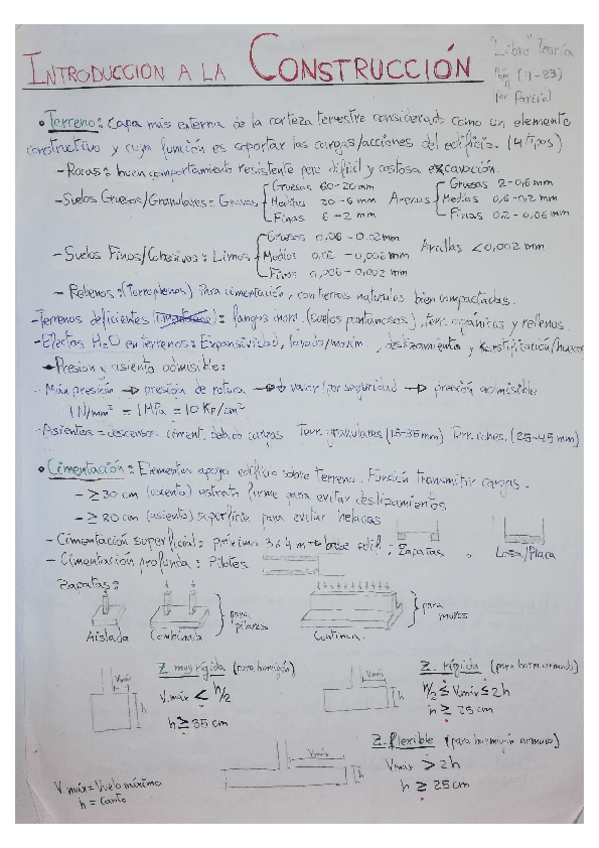 INTRODUCCION A LA CONSTRUCCIÓN
"Libro" Teoría
(7-83)
1er Parcial
• Terreno: Capa más externa de la corteza terrestre considerado como un elemento
constructivo y cuya función es soportar las cargas/acciones del edificio. (4 tipos)
- Rocas: buen comportamiento resistente pero difícil y costosa excavación.
- Suelos Gruesos/Granulares: Gravas Gruesas 60-20 mm Arenas Gruesas 2-0,6 mm
Medias 20-6 mm Medias 0,6-0,2 mm
Finas 6-2 mm Finas 0,2-0,06 mm
- Suelos Finos/Cohesivos: Limos Gruesos 0,06-0,02 mm Arcillas <0,002 mm
Medios 0,02-0,006 mm
Finos 0,006-0,002 mm
- Rellenos: (Terraplenes) Para cimentación, con tierras naturales bien compactadas.
- Terrenos deficientes: fangos inorg. (suelos pantanosos), terr. orgánicos y rellenos.
- Efectos H2O en terrenos: Expansividad, lavado/movim., deslizamientos y karstificación/huecos
- Presion y asiento admisible:
- Máx presión → presión de rotura → ↓ valor por seguridad → presión admisible
1 N/mm² = 1 MPa = 10 Kp/cm²
- Asientos = descensos ciment. debido cargas Terr. granulares (15-35mm) Terr. cohes. (25-45 mm)
• Cimentación: Elementos apoyo edificio sobre terreno. Función transmitir cargas.
- ≥30 cm (asiento) estrato firme para evitar deslizamientos
- ≥80 cm (asiento) superficie para evitar heladas
- Cimentación superficial: próximo 3 ó 4 m → base edif.: Zapatas o Losa/Placa
- Cimentación profunda: Pilotes
Zapatas:
para pilares
para muros
Aislada Combinada Continua.
Z. muy rígida (para hormigón)
Vmáx < h/2
h ≥ 35 cm
Vmáx
h
Z. rígida (para horm. armado)
h/2 ≤ Vmáx ≤ 2h
h ≥ 25 cm
Vmáx
h
Z. flexible (para hormigón armado)
Vmáx > 2h
h ≥ 25 cm
Vmáx
h
Vmáx = Vuelo máximo
h = Canto